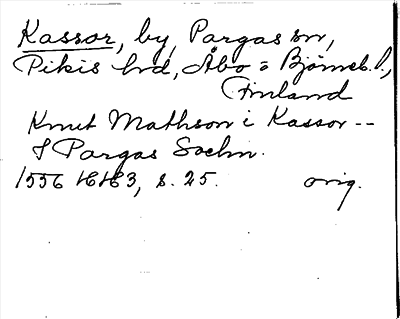 Kassor, by, Pargas sn,
Pikis hrd, Åbo o Björneb. l.,
Finland
Knut Mathson i Kassor --
I Pargas Sochn.
1556 HH3, s. 25. orig.